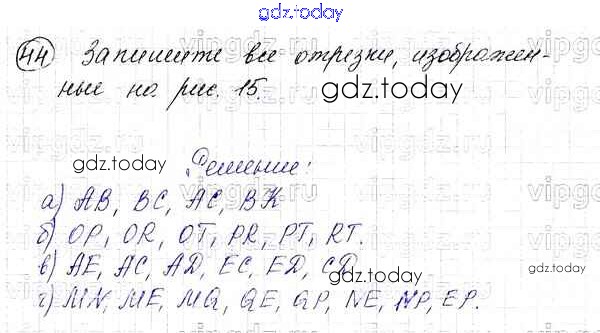 gdz.today
44 Запишите все отрезки, изображен-
ные на рис. 15.
gdz.today
gdz.today
Решение:
а) AB, BC, AC, BK
б) OP, OR, OT, PR, PT, RT.
в) AE, AC, AD, EC, ED, CD
gdz.today
г) MN, ME, MQ, QE, QP, NE, NP, EP.